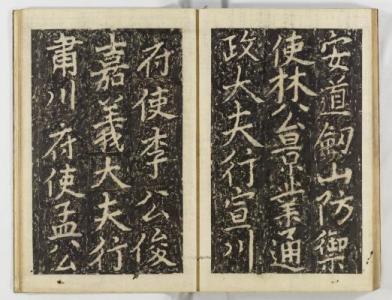 安道釼山防禦
使林公昌業通
政大夫行宣川
府使李公俊
嘉義大夫行
肅川府使孟公